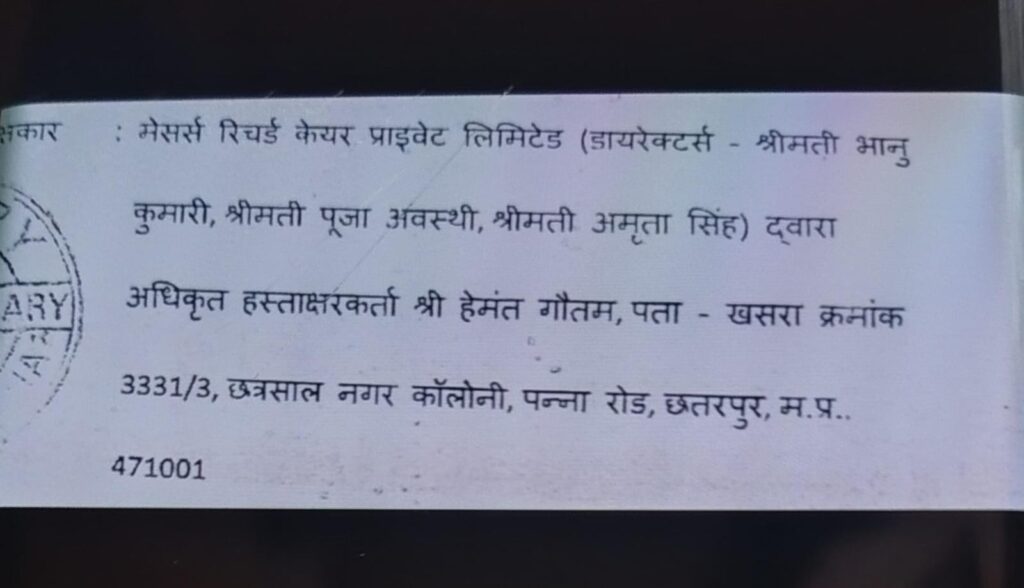 कार : मेसर्स रिचर्ड केयर प्राइवेट लिमिटेड (डायरेक्टर्स - श्रीमती भानु
कुमारी, श्रीमती पूजा अवस्थी, श्रीमती अमृता सिंह) द्वारा
अधिकृत हस्ताक्षरकर्ता श्री हेमंत गौतम, पता - खसरा क्रमांक
ARY
3331/3, छत्रसाल नगर कॉलोनी, पन्ना रोड, छतरपुर, म.प्र..
471001